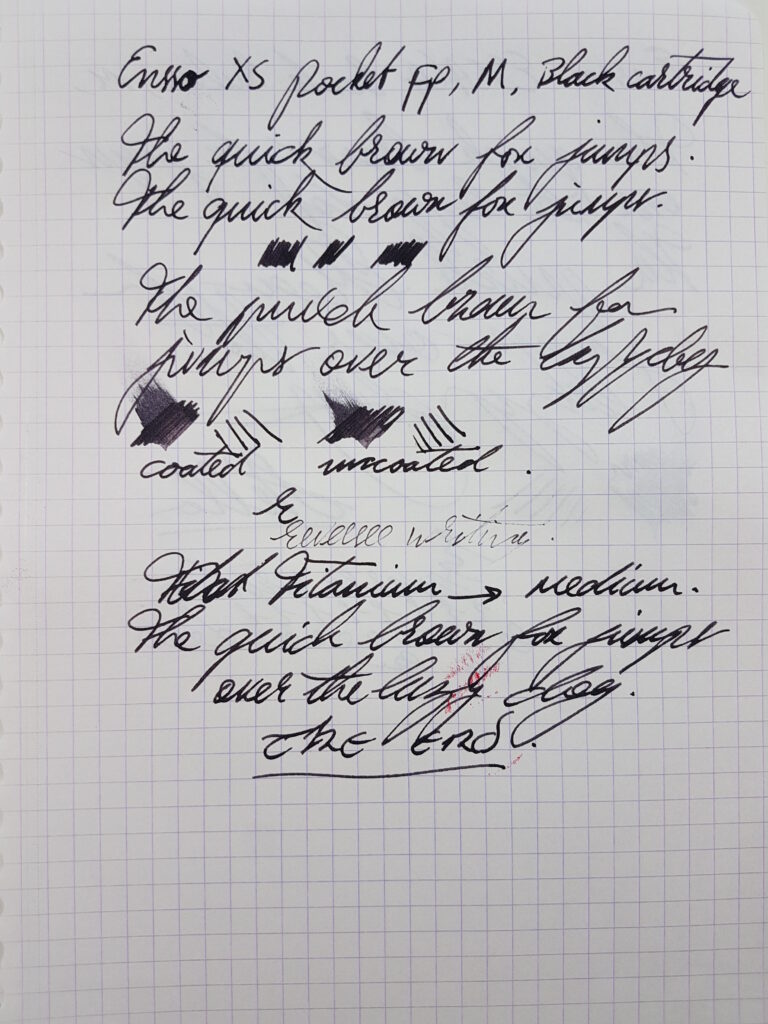 Ensso XS pocket FP, M, Black cartridge
The quick brown fox jumps.
The quick brown fox jumps.
The quick brown fox
jumps over the lazy dog
coated uncoated .
reverse writing.
Titanium → medium.
The quick brown fox jumps
over the lazy dog.
THE END.